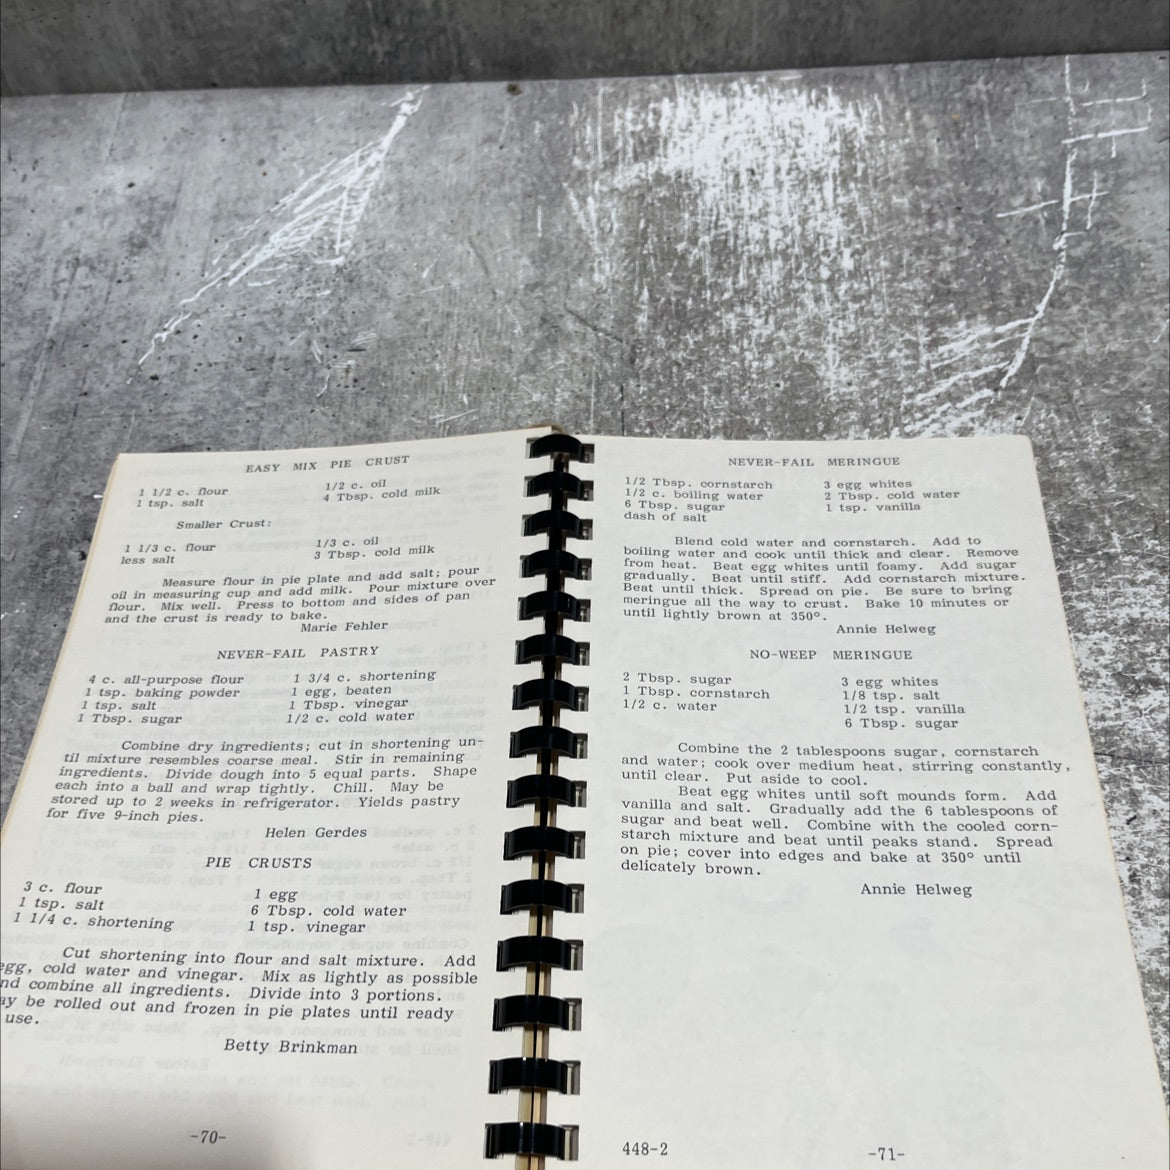 EASY MIX PIE CRUST
1 1/2 c. flour 1/2 c. oil
1 tsp. salt 4 Tbsp. cold milk
Smaller Crust:
1 1/3 c. flour 1/3 c. oil
less salt 3 Tbsp. cold milk
Measure flour in pie plate and add salt; pour
oil in measuring cup and add milk. Pour mixture over
flour. Mix well. Press to bottom and sides of pan
and the crust is ready to bake.
Marie Fehler
NEVER-FAIL PASTRY
4 c. all-purpose flour 1 3/4 c. shortening
1 tsp. baking powder 1 egg, beaten
1 tsp. salt 1 Tbsp. vinegar
1 Tbsp. sugar 1/2 c. cold water
Combine dry ingredients; cut in shortening un-
til mixture resembles coarse meal. Stir in remaining
ingredients. Divide dough into 5 equal parts. Shape
each into a ball and wrap tightly. Chill. May be
stored up to 2 weeks in refrigerator. Yields pastry
for five 9-inch pies.
Helen Gerdes
PIE CRUSTS
3 c. flour 1 egg
1 tsp. salt 6 Tbsp. cold water
1 1/4 c. shortening 1 tsp. vinegar
Cut shortening into flour and salt mixture. Add
egg, cold water and vinegar. Mix as lightly as possible
nd combine all ingredients. Divide into 3 portions.
ay be rolled out and frozen in pie plates until ready
use.
Betty Brinkman
-70-
NEVER-FAIL MERINGUE
1/2 Tbsp. cornstarch 3 egg whites
1/2 c. boiling water 2 Tbsp. cold water
6 Tbsp. sugar 1 tsp. vanilla
dash of salt
Blend cold water and cornstarch. Add to
boiling water and cook until thick and clear. Remove
from heat. Beat egg whites until foamy. Add sugar
gradually. Beat until stiff. Add cornstarch mixture.
Beat until thick. Spread on pie. Be sure to bring
meringue all the way to crust. Bake 10 minutes or
until lightly brown at 350°.
Annie Helweg
NO-WEEP MERINGUE
2 Tbsp. sugar 3 egg whites
1 Tbsp. cornstarch 1/8 tsp. salt
1/2 c. water 1/2 tsp. vanilla
6 Tbsp. sugar
Combine the 2 tablespoons sugar, cornstarch
and water; cook over medium heat, stirring constantly,
until clear. Put aside to cool.
Beat egg whites until soft mounds form. Add
vanilla and salt. Gradually add the 6 tablespoons of
sugar and beat well. Combine with the cooled corn-
starch mixture and beat until peaks stand. Spread
on pie; cover into edges and bake at 350° until
delicately brown.
Annie Helweg
448-2 -71-